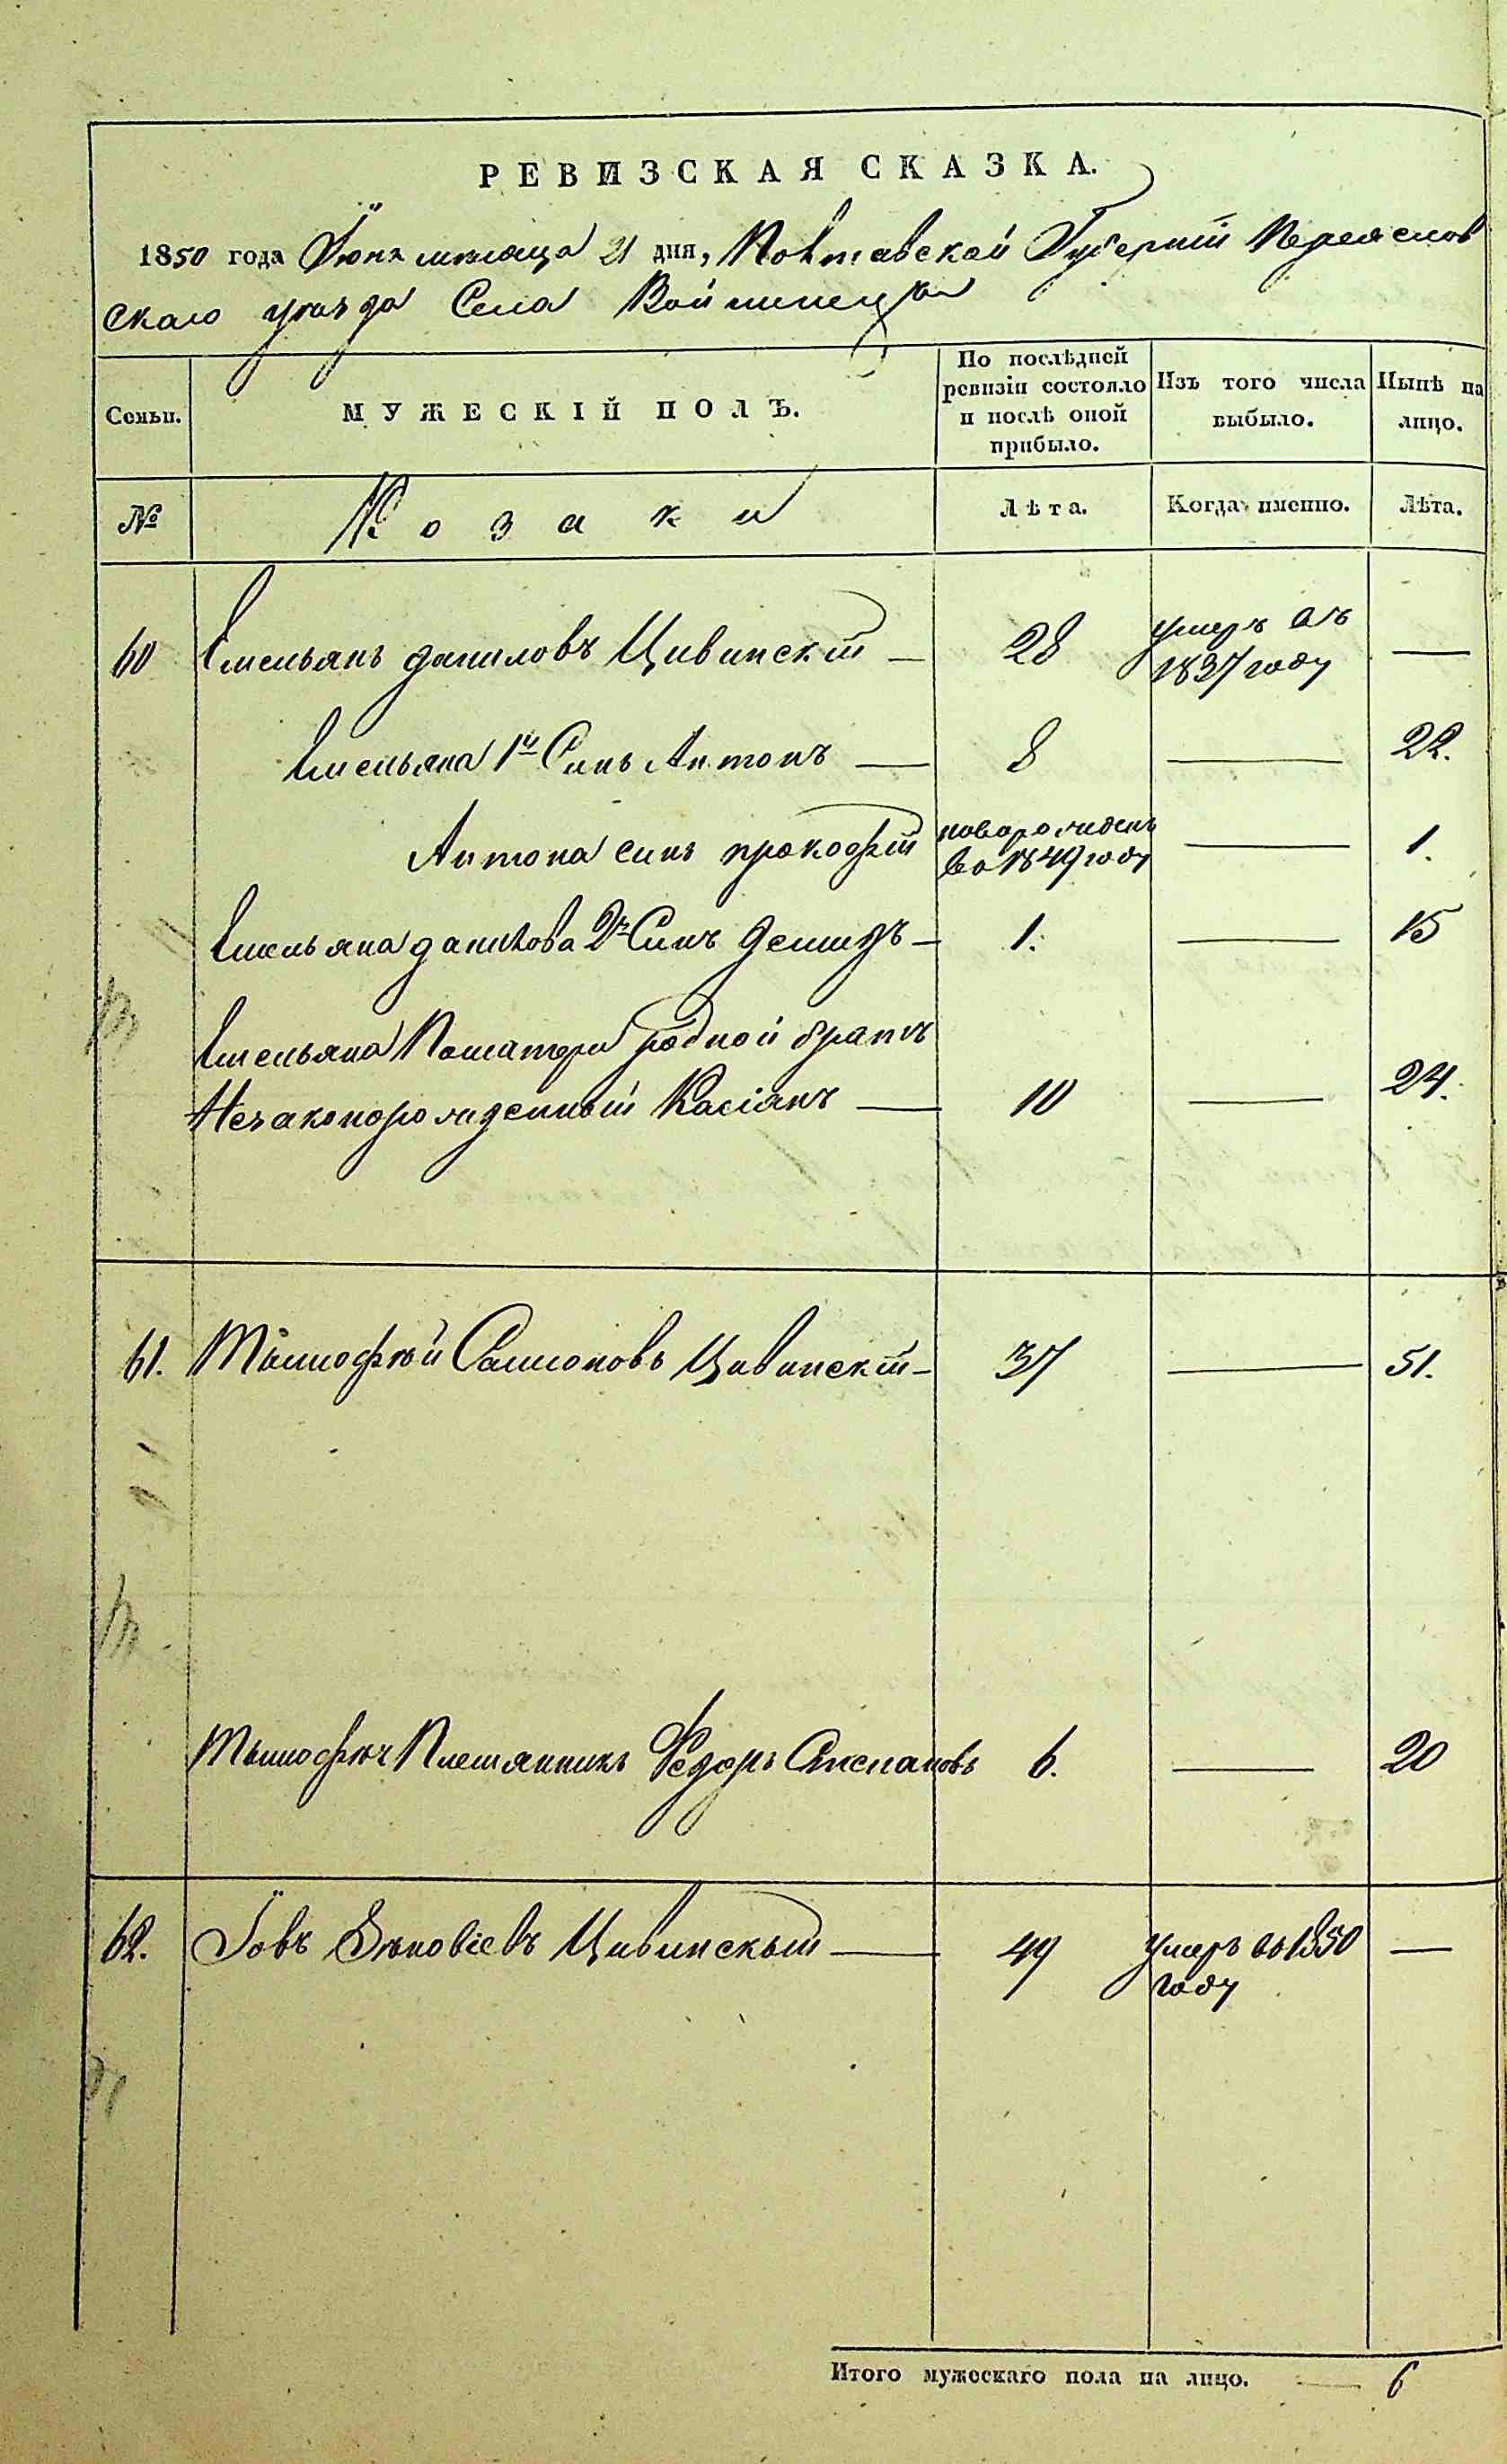 РЕВИЗСКАЯ СКАЗКА.
1850 года Іюня месяца 21 дня, Полтавской Губерніи Переяслов
скаго уезда Села Войтинец
Семьи.
МУЖЕСКІЙ ПОЛЪ.
По послѣдней
ревизіи состояло
и послѣ оной
прибыло.
Изъ того числа
выбыло.
Нынѣ на
лицо.
№
Козаки
Лѣта.
Когда именно.
Лѣта.
60 Емельянъ даниловъ Цивинскій — 28 умеръ въ —
1837 году
Емельяна 1й Синъ Антонъ — 8 — 22.
Антона синъ прокофій новорожденъ — 1.
во 1849 году
Емельяна данилова 2й Синъ демидъ — 1. — 15
Емельяна Поматери родной братъ
Незаконорожденный Касіянъ — 10 — 24.
61. Тимофѣй Самсоновъ Цивинскій — 37 — 51.
Племянникъ Федоръ Степановъ 6. — 20
62. Іовъ Зѣновіевъ Цивинскый — 49 умеръ во 1850 —
году
Итого мужескаго пола на лицо. — 6